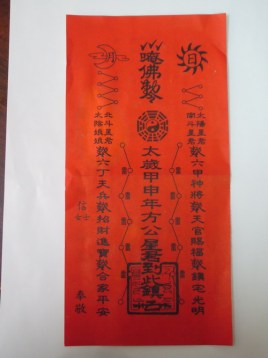 太陽星君
南斗星君
勅六甲神將勅天官賜福勅鎮宅光明
太歲甲申年方公星君到此鎮
北斗星君
太陰娘娘
勅六丁天兵勅招財進寶勅合家平安
信
奉敬